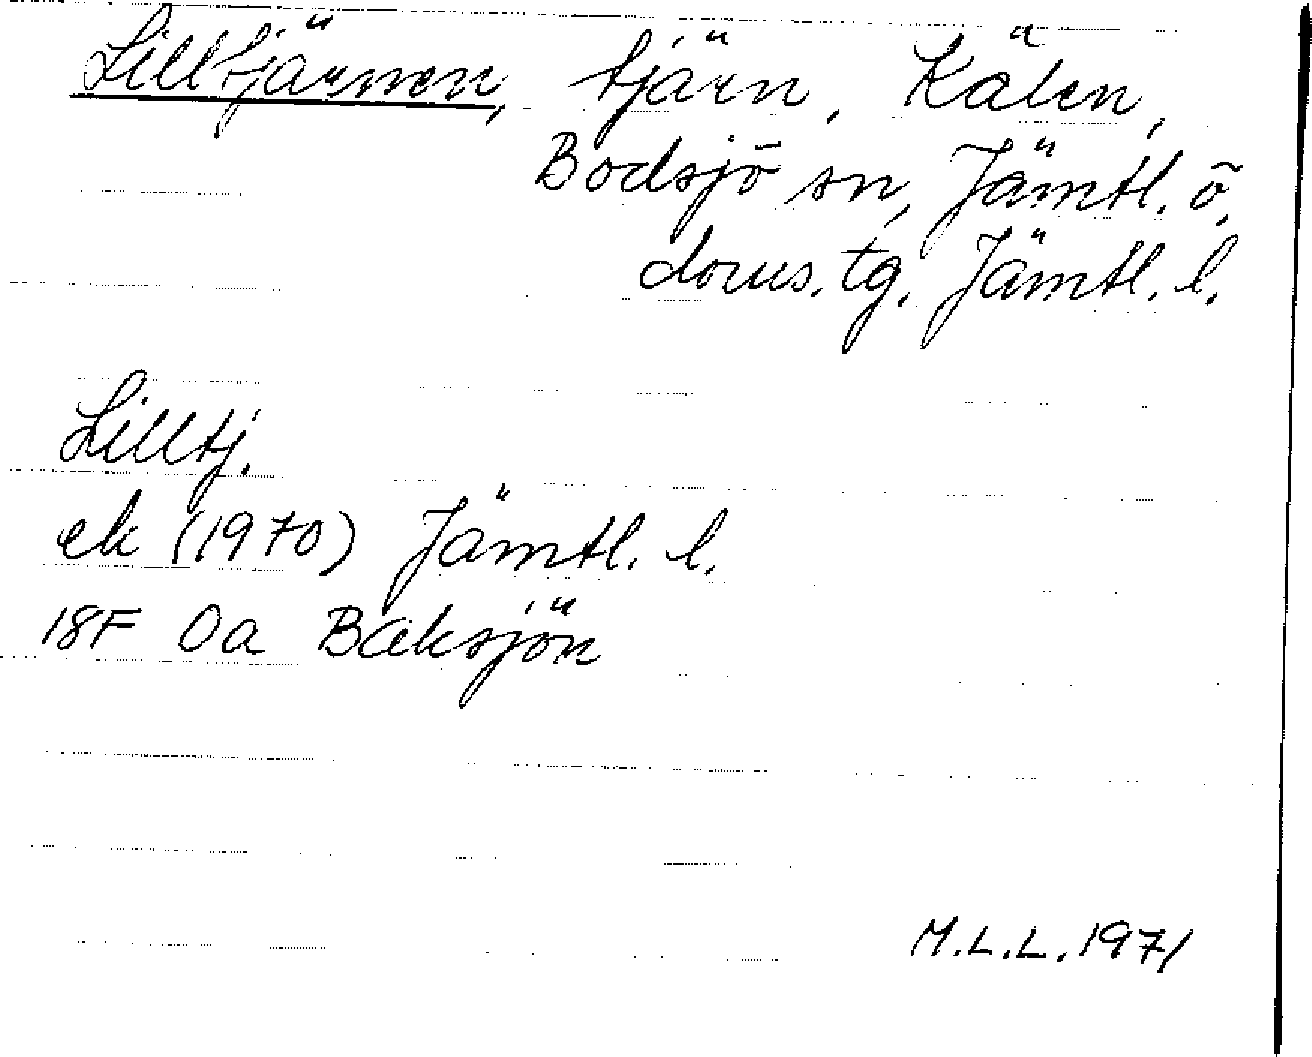 Lilltjärnen, tjärn, Kälen,
Bodsjö sn, Jämtl. ö.
doms. tg. Jämtl. l.
Lilltj.
ek (1970) Jämtl. l.
18F 0a Bäksjön
M.L.L. 1971